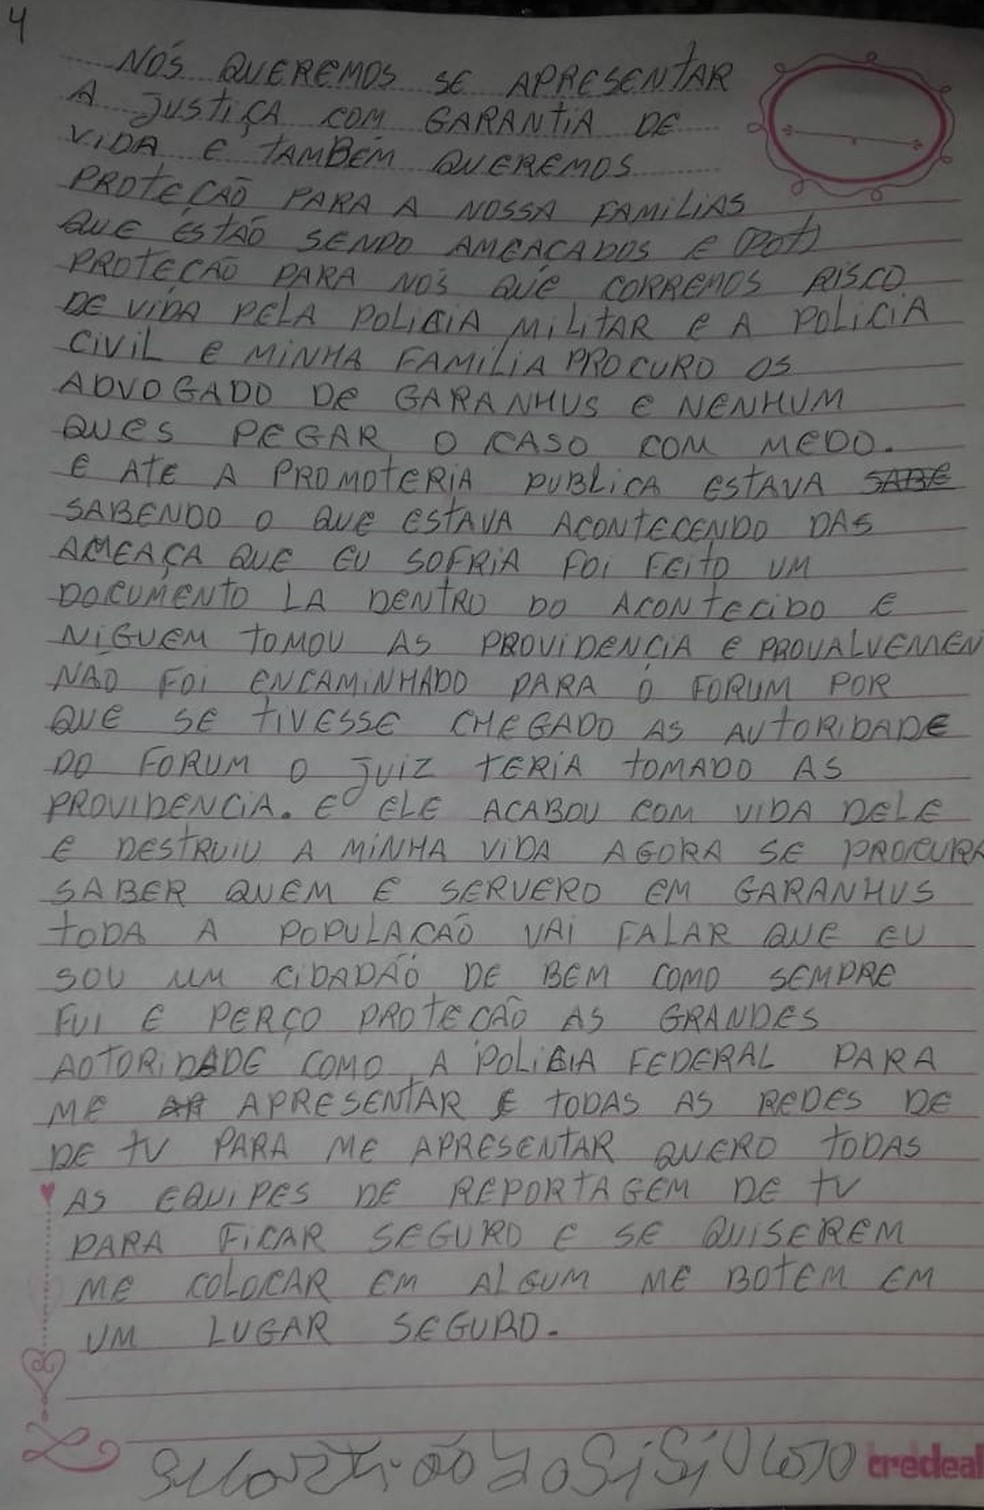 4
NÓS QUEREMOS SE APRESENTAR
A JUSTIÇA COM GARANTIA DE
VIDA E TAMBÉM QUEREMOS
PROTEÇÃO PARA A NOSSA FAMILIAS
QUE ÉSTÃO SENDO AMEAÇADOS E (POT)
PROTECÃO PARA NÓS QUE CORREMOS RISCO
DE VIDA PELA POLICIA MILITAR E A POLICIA
CIVIL E MINHA FAMILIA PROCURO OS
ADVOGADO DE GARANHUS E NENHUM
QUES PEGAR O CASO COM MEDO.
E ATE A PROMOTERIA PUBLICA ESTAVA SABE
SABENDO O QUE ESTAVA ACONTECENDO DAS
AMEAÇA QUE EU SOFRIA FOI FEITO UM
DOCUMENTO LA DENTRO DO ACONTECIDO E
NIGUEM TOMOU AS PROVIDENCIA E PROVALVEMEN
NAO FOI ENCAMINHADO PARA O FORUM POR
QUE SE TIVESSE CHEGADO AS AUTORIDADE
DO FORUM O JUIZ TERIA TOMADO AS
PROVIDENCIA. E ELE ACABOU COM VIDA DELE
E DESTRUIU A MINHA VIDA AGORA SE PROCURA
SABER QUEM E SERVERO EM GARANHUS
TODA A POPULACÃO VAI FALAR QUE EU
SOU UM CIDADÃO DE BEM COMO SEMPRE
FUI E PERÇO PROTECÃO AS GRANDES
AOTORIDADE COMO A POLICIA FEDERAL PARA
ME APRESENTAR E TODAS AS REDES DE
DE TV PARA ME APRESENTAR QUERO TODAS
AS EQUIPES DE REPORTAGEM DE TV
PARA FICAR SEGURO E SE QUISEREM
ME COLOCAR EM ALGUM ME BOTEM EM
UM LUGAR SEGURO.
credeal